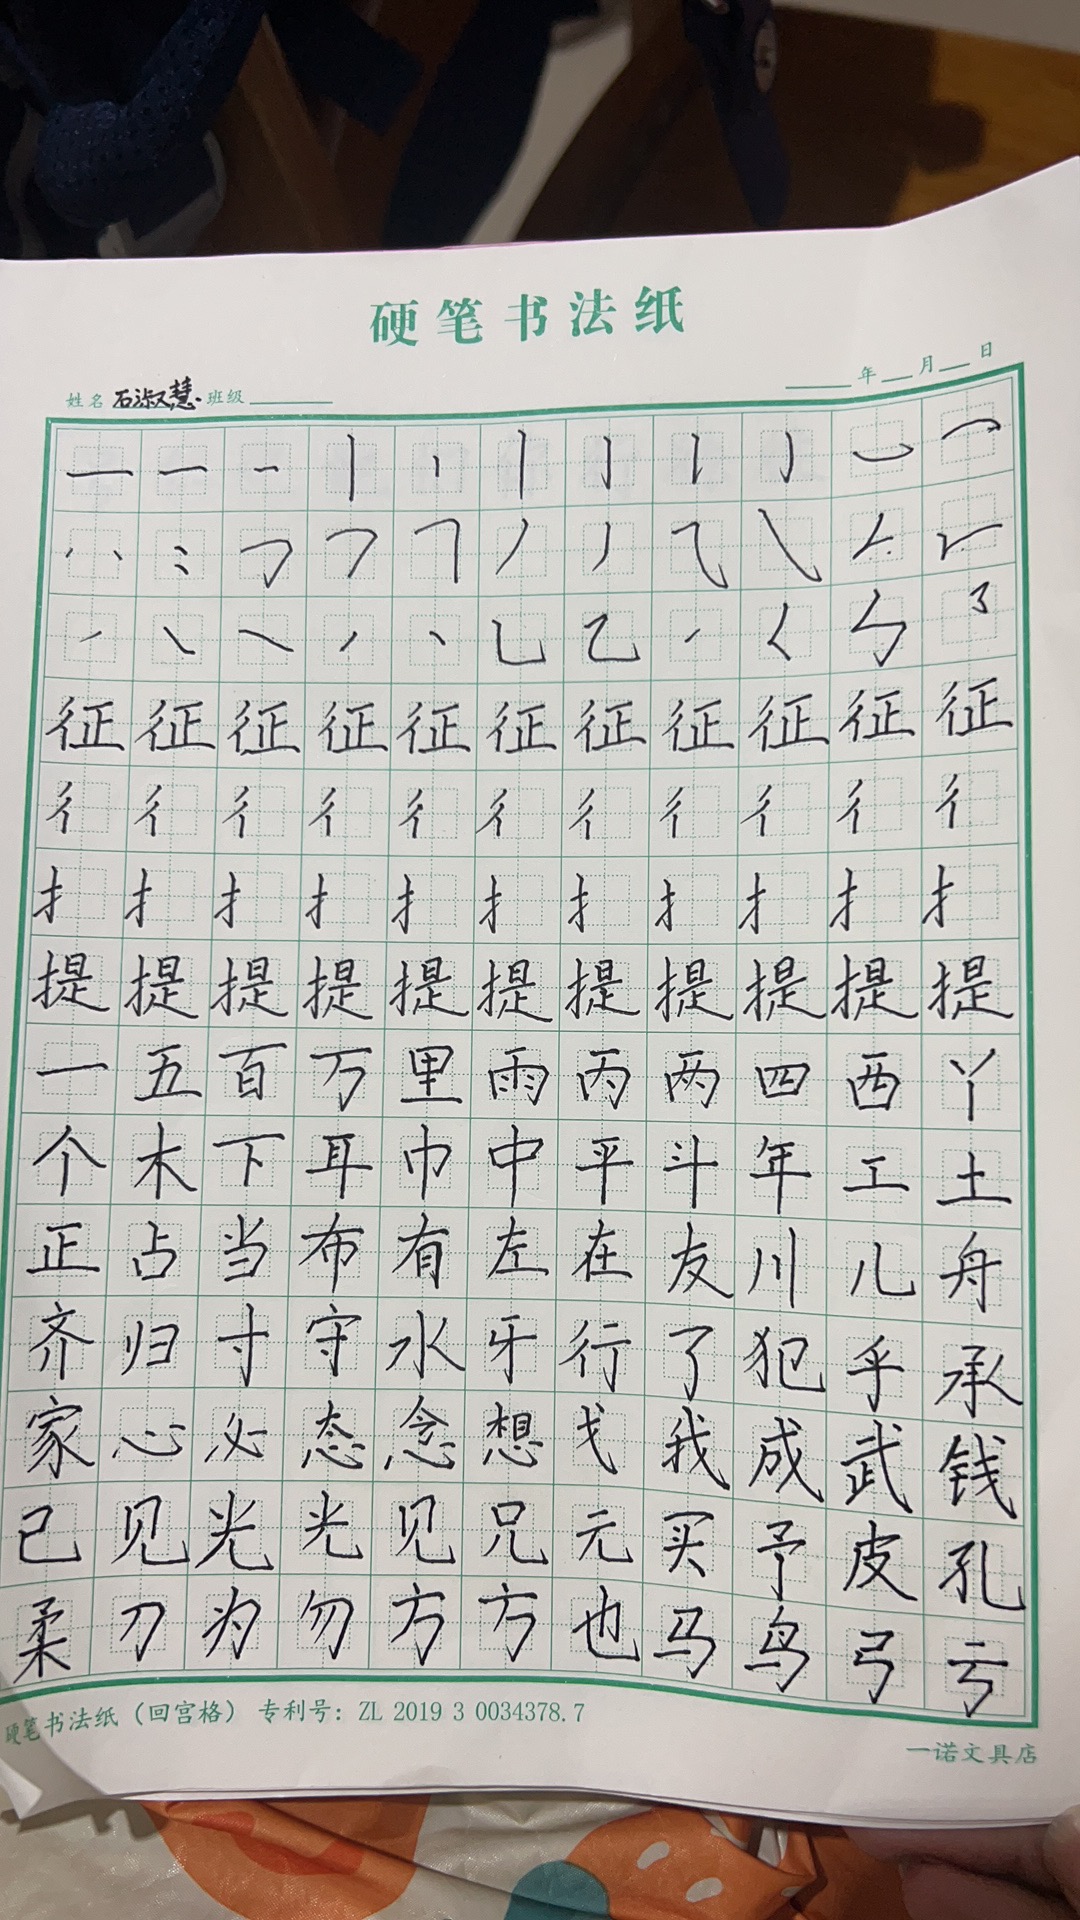 硬笔书法纸
姓名 石淑慧 班级 年 月 日
征 征 征 征 征 征 征 征 征 征 征
彳 彳 彳 彳 彳 彳 彳 彳 彳 彳 彳
扌 扌 扌 扌 扌 扌 扌 扌 扌 扌 扌
提 提 提 提 提 提 提 提 提 提 提
一 五 百 万 里 雨 丙 两 四 西 丫
个 木 下 耳 巾 中 平 斗 年 工 土
正 占 当 布 有 左 在 友 川 儿 舟
齐 归 寸 守 水 牙 行 了 犯 乎 承
家 心 必 态 念 想 弋 我 成 武 钱
己 见 光 光 见 兄 元 买 予 皮 孔
柔 刀 为 勿 方 方 也 马 鸟 弓 亏
硬笔书法纸（回宫格） 专利号：ZL 2019 3 0034378.7
一诺文具店